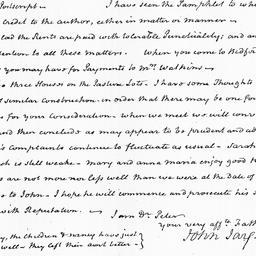 Postscript — I have seen the Pamphlet to wh
credit to the author, either in matter or manner —
lad the Rents are paid with tolerable Punctuality; and an
tention to all these matters. When you come to Bedfor
s you may have for Payments to Mrs. Watkins —
he three Houses on the Pasture Lots. I have some Thoughts
f similar construction. in order that there may be one for
s for your Consideration. when we meet we will conv
and then conclude as may appear to be prudent and ad
's complaints continue to fluctuate as usual. — Sarah
ish is still weake — Mary and anna maria enjoy good h
es are not more nor less well than we were at the Date of
es to John — I hope he will commence and prosecute his s
with Reputation. —
I am Dr. Peter
your very afft. Fath
John Jay.
y, the Children & nancy have just
well — they left their aunt better —